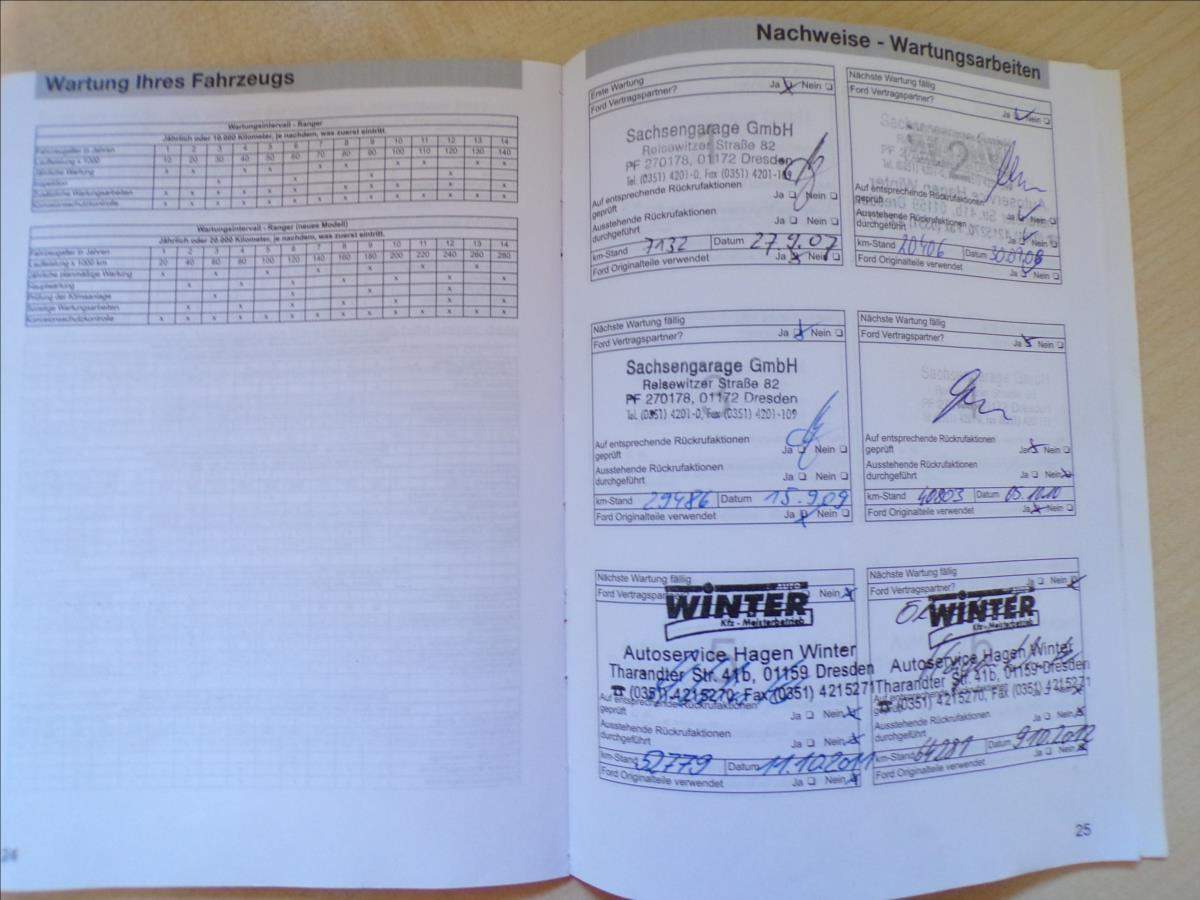 Wartung Ihres Fahrzeugs
Wartungsintervall - Ranger
Jährlich oder 10.000 Kilometer, je nachdem, was zuerst eintritt.
Fahrzeugalter in Jahren 1 2 3 4 5 6 7 8 9 10 11 12 13 14
Laufleistung x 1000 10 20 30 40 50 60 70 80 90 100 110 120 130 140
Jährliche Wartung
Inspektion
Zusätzliche Wartungsarbeiten
Korrosionsschutzkontrolle
Wartungsintervall - Ranger (neues Modell)
Jährlich oder 20.000 Kilometer, je nachdem, was zuerst eintritt.
Fahrzeugalter in Jahren 1 2 3 4 5 6 7 8 9 10 11 12 13 14
Laufleistung x 1000 km 20 40 60 80 100 120 140 160 180 200 220 240 260 280
Jährliche planmäßige Wartung
Hauptwartung
Prüfung der Klimaanlage
Sonstige Wartungsarbeiten
Korrosionsschutzkontrolle
24
Nachweise - Wartungsarbeiten
Erste Wartung
Ford Vertragspartner? Ja Nein
Sachsengarage GmbH
Reisewitzer Straße 82
PF 270178, 01172 Dresden
Tel. (0351) 4201-0, Fax (0351) 4201-109
Auf entsprechende Rückrufaktionen
geprüft Ja Nein
Ausstehende Rückrufaktionen
durchgeführt Ja Nein
km-Stand 7132 Datum 27.9.07
Ford Originalteile verwendet Ja Nein
Nächste Wartung fällig
Ford Vertragspartner?
Ja Nein
2
Auf entsprechende Rückrufaktionen
geprüft Ja Nein
Ausstehende Rückrufaktionen
durchgeführt Ja Nein
km-Stand 20406 Datum 30.09.08
Ford Originalteile verwendet Ja Nein
Nächste Wartung fällig
Ford Vertragspartner? Ja Nein
Sachsengarage GmbH
Reisewitzer Straße 82
PF 270178, 01172 Dresden
Tel. (0351) 4201-0, Fax (0351) 4201-109
Auf entsprechende Rückrufaktionen
geprüft Ja Nein
Ausstehende Rückrufaktionen
durchgeführt Ja Nein
km-Stand 29486 Datum 15.9.09
Ford Originalteile verwendet Ja Nein
Nächste Wartung fällig
Ford Vertragspartner? Ja Nein
Auf entsprechende Rückrufaktionen
geprüft Ja Nein
Ausstehende Rückrufaktionen
durchgeführt Ja Nein
km-Stand 40803 Datum 05.10.10
Ford Originalteile verwendet Ja Nein
Nächste Wartung fällig
Ford Nein
AUTO
WINTER
Kfz - Meisterbetrieb
Autoservice Hagen Winter
Tharandter Str. 41b, 01159 Dresden
☎ (0351) 4215270, Fax (0351) 4215271
Auf entsprechende Rückrufaktionen
geprüft Ja Nein
Ausstehende Rückrufaktionen
durchgeführt Ja Nein
km-Stand 52779 Datum 11.10.2011
Ford Originalteile verwendet Ja Nein
Nächste Wartung fällig
Ford Vertragspartner? Ja Nein
WINTER
Kfz - Meisterbetrieb
Autoservice Hagen Winter
Tharandter Str. 41b, 01159 Dresden
☎ (0351) 4215270, Fax (0351) 4215271
geprüft
Ausstehende Rückrufaktionen
durchgeführt Ja Nein
km-Stand 64281 Datum 9.10.2012
Ford Originalteile verwendet Ja Nein
25